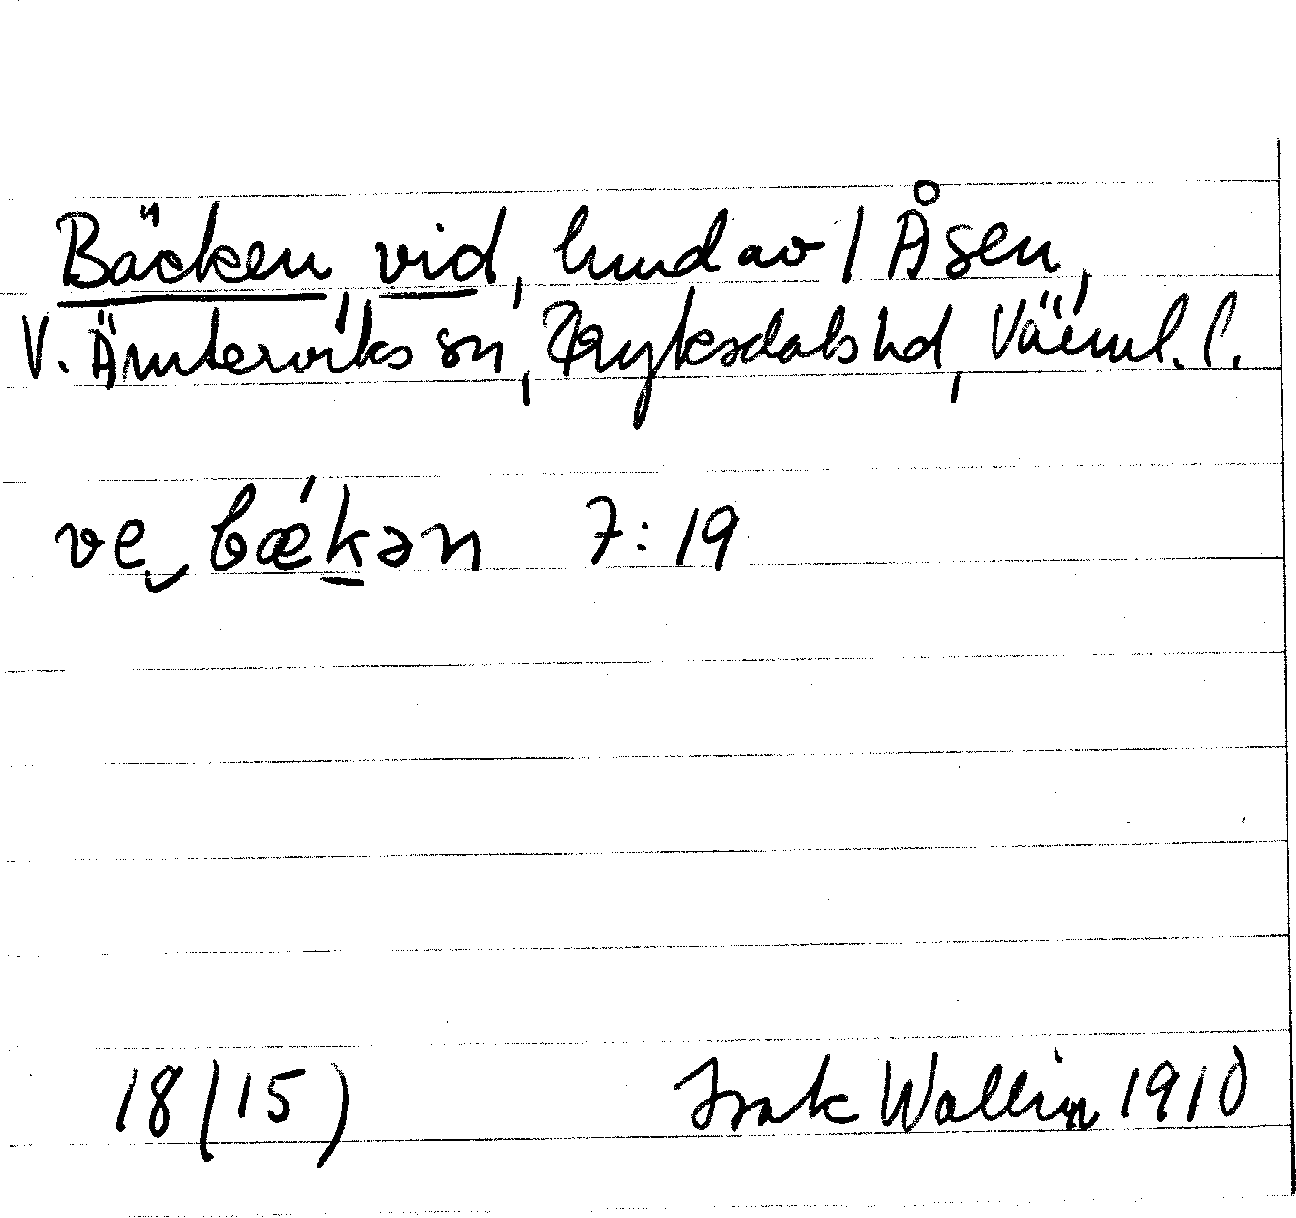 Bäcken, vid, hmd av 1 Åsen,
V. Ämterviks sn, Fryksdals hd, Värml. l.
ve‿bǽk̠ən 7:19
18 (15) Isak Wallin 1910